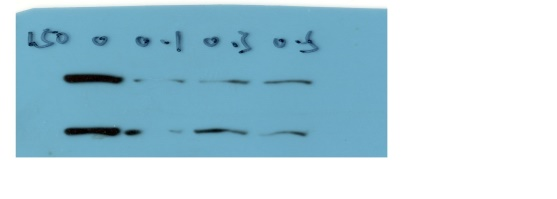 250 0 0.1 0.3 0.5